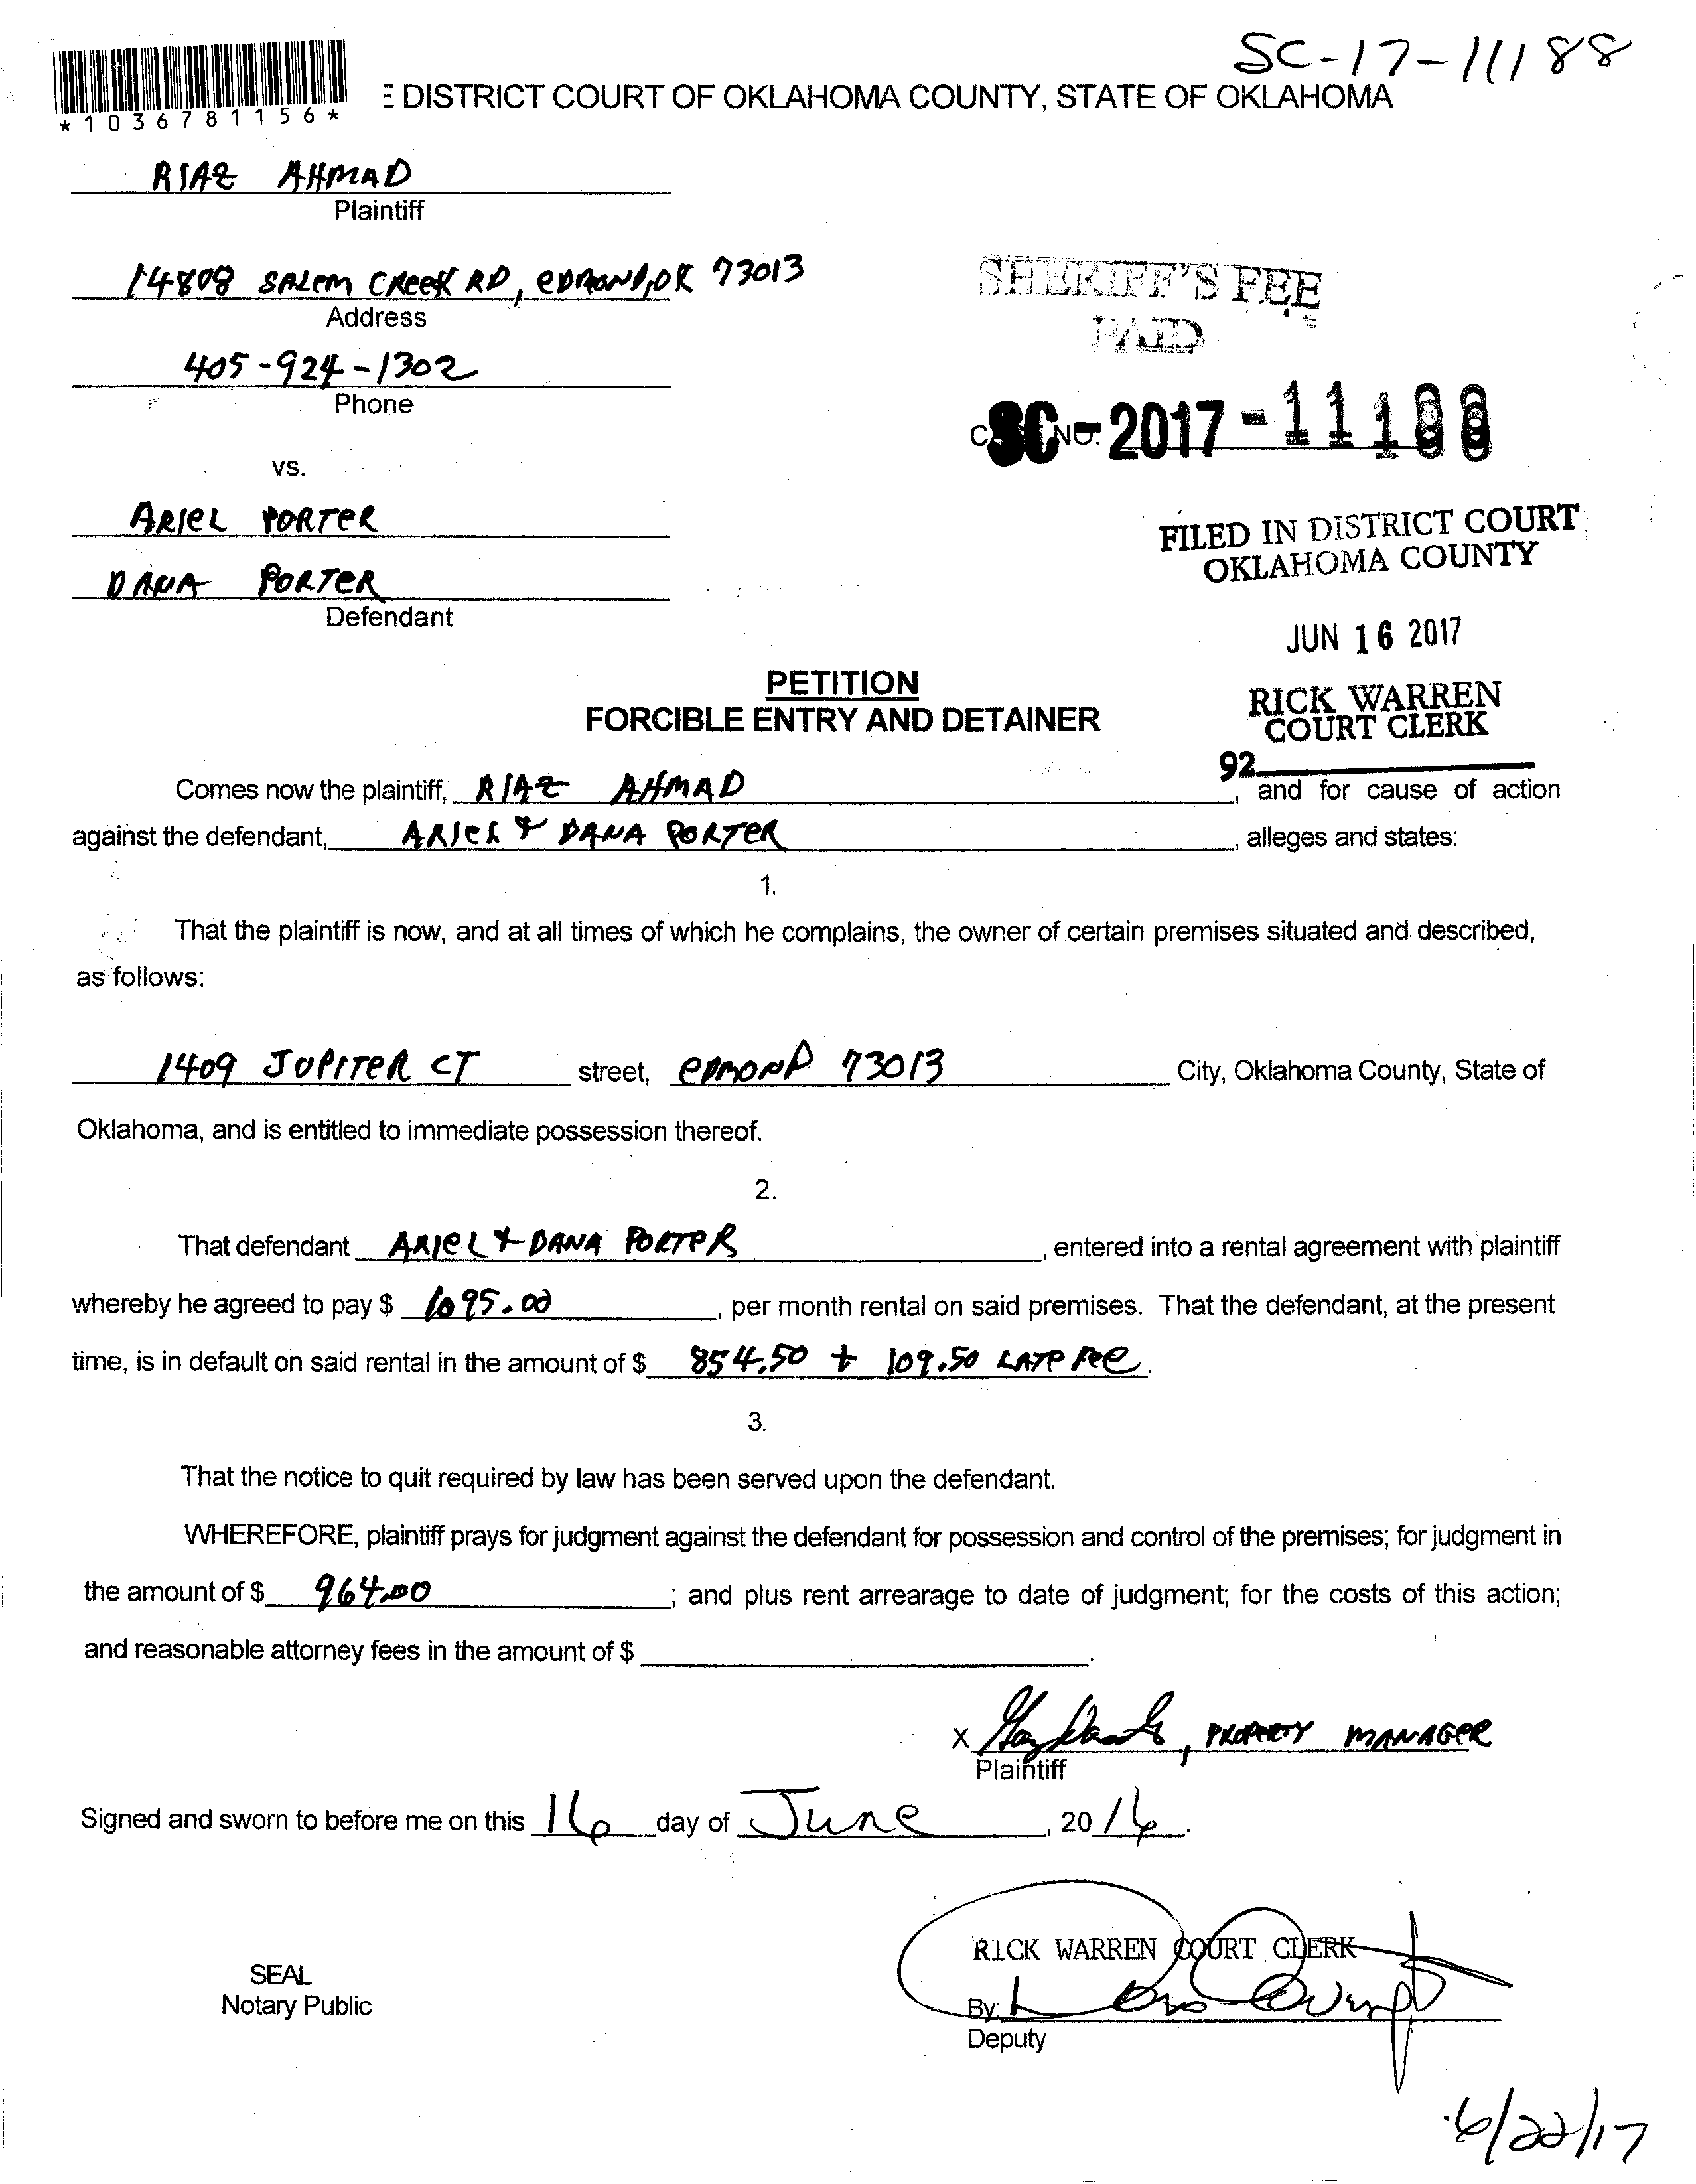 SC-17-11188
*1036781156*
E DISTRICT COURT OF OKLAHOMA COUNTY, STATE OF OKLAHOMA
RIAZ AHMAD
Plaintiff
14808 SALEM CREEK RD, EDMOND, OK 73013
Address
405-924-1302
Phone
SHERIFF'S FEE
PAID
SC-2017-11188
NO.
vs.
ARIEL PORTER
DANA PORTER
Defendant
FILED IN DISTRICT COURT
OKLAHOMA COUNTY
JUN 16 2017
RICK WARREN
COURT CLERK
92
PETITION
FORCIBLE ENTRY AND DETAINER
Comes now the plaintiff, RIAZ AHMAD, and for cause of action
against the defendant, ARIEL & DANA PORTER, alleges and states:
1.
That the plaintiff is now, and at all times of which he complains, the owner of certain premises situated and described,
as follows:
1409 JUPITER CT street, EDMOND 73013 City, Oklahoma County, State of
Oklahoma, and is entitled to immediate possession thereof.
2.
That defendant ARIEL & DANA PORTER, entered into a rental agreement with plaintiff
whereby he agreed to pay $ 1095.00, per month rental on said premises. That the defendant, at the present
time, is in default on said rental in the amount of $ 854.50 + 109.50 LATE FEE.
3.
That the notice to quit required by law has been served upon the defendant.
WHEREFORE, plaintiff prays for judgment against the defendant for possession and control of the premises; for judgment in
the amount of $ 964.00; and plus rent arrearage to date of judgment; for the costs of this action;
and reasonable attorney fees in the amount of $ .
X , PROPERTY MANAGER
Plaintiff
Signed and sworn to before me on this 16 day of June, 2016.
RICK WARREN COURT CLERK
SEAL
Notary Public
By:
Deputy
6/22/17